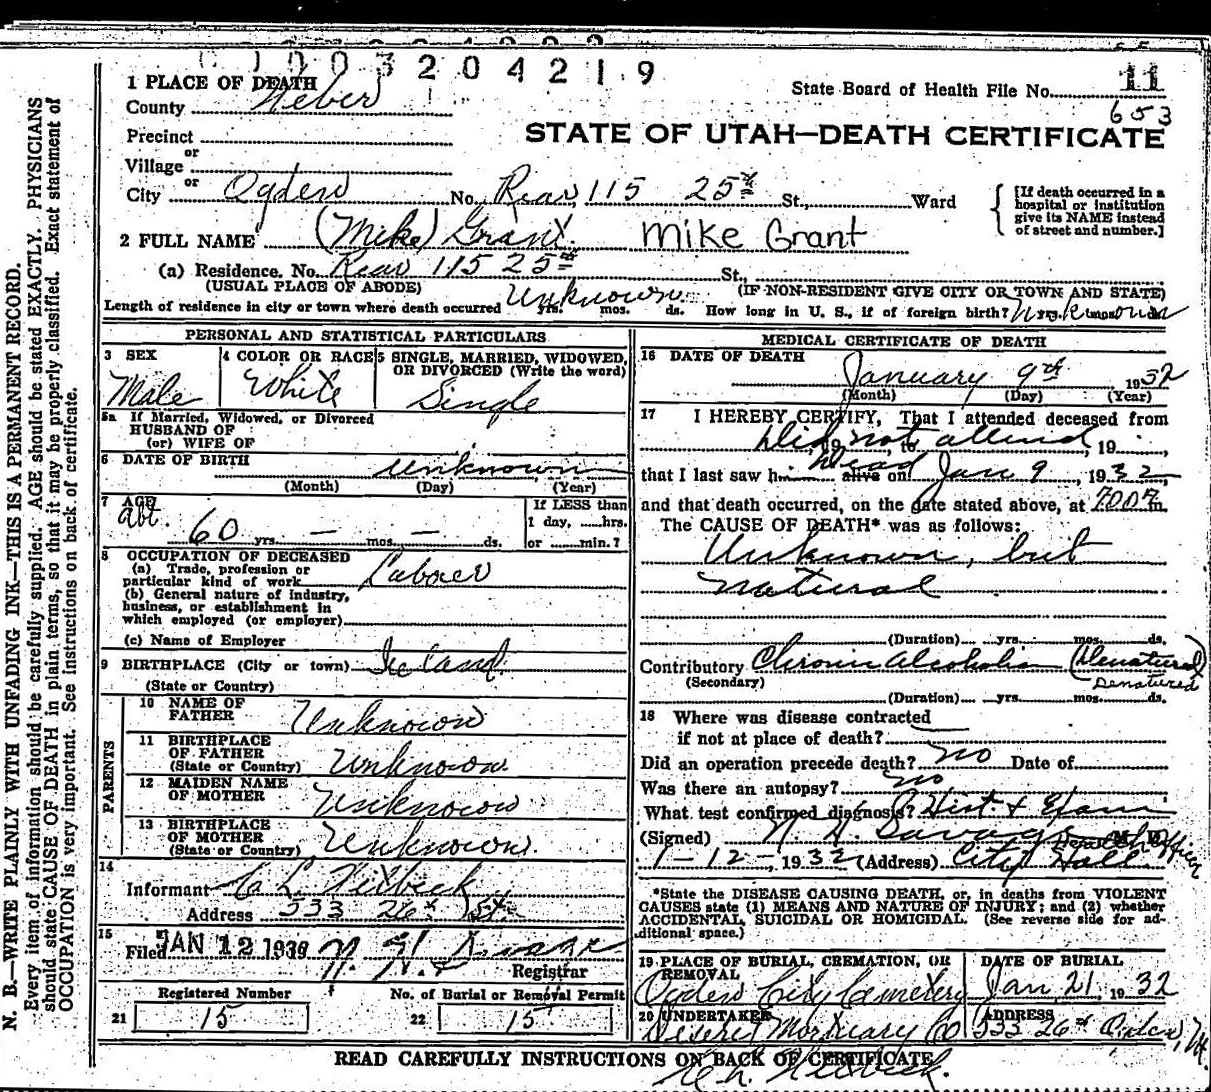 0 1 0 0 3 2 0 4 2 1 9
1 PLACE OF DEATH
County Weber
State Board of Health File No. 11
653
Precinct
or
Village
or
City Ogden No. Rear 115 25th St., Ward
[If death occurred in a
hospital or institution
give its NAME instead
of street and number.]
STATE OF UTAH—DEATH CERTIFICATE
2 FULL NAME (Mike) Grant. Mike Grant
(a) Residence. No. Rear 115 25th St.,
(USUAL PLACE OF ABODE) (IF NON-RESIDENT GIVE CITY OR TOWN AND STATE)
Length of residence in city or town where death occurred Unknown yrs. mos. ds. How long in U. S., if of foreign birth? yrs. mos. ds.
PERSONAL AND STATISTICAL PARTICULARS
3 SEX
Male
4 COLOR OR RACE
White
5 SINGLE, MARRIED, WIDOWED,
OR DIVORCED (Write the word)
Single
5a If Married, Widowed, or Divorced
HUSBAND OF
(or) WIFE OF
6 DATE OF BIRTH unknown
(Month) (Day) (Year)
7 AGE
abt. 60 yrs. — mos. — ds.
If LESS than
1 day, ......hrs.
or ........min.?
8 OCCUPATION OF DECEASED
(a) Trade, profession or
particular kind of work Laborer
(b) General nature of industry,
business, or establishment in
which employed (or employer)
(c) Name of Employer
9 BIRTHPLACE (City or town) Ireland.
(State or Country)
PARENTS
10 NAME OF
FATHER Unknown
11 BIRTHPLACE
OF FATHER
(State or Country) Unknown
12 MAIDEN NAME
OF MOTHER Unknown
13 BIRTHPLACE
OF MOTHER
(State or Country) Unknown.
14
Informant
Address 533 26th St.
15
Filed JAN 12 1932
Registrar
Registered Number No. of Burial or Removal Permit
21 15 22 15
MEDICAL CERTIFICATE OF DEATH
16 DATE OF DEATH
January 9th, 1932
(Month) (Day) (Year)
17 I HEREBY CERTIFY, That I attended deceased from
Did not attend, 19
that I last saw h dead alive on Jan 9, 1932,
and that death occurred, on the date stated above, at m.
The CAUSE OF DEATH* was as follows:
Unknown, but
natural
(Duration) yrs. mos. ds.
Contributory Chronic Alcoholic (Denatured)
(Secondary) Denatured
(Duration) yrs. mos. ds.
18 Where was disease contracted
if not at place of death?
Did an operation precede death? no Date of
Was there an autopsy? no
What test confirmed diagnosis? Hist & Exam
(Signed) N. H. Savage M. D. Health Officer
1-12-, 1932 (Address) City Hall
*State the DISEASE CAUSING DEATH, or, in deaths from VIOLENT
CAUSES state (1) MEANS AND NATURE OF INJURY; and (2) whether
ACCIDENTAL, SUICIDAL OR HOMICIDAL. (See reverse side for ad-
ditional space.)
19 PLACE OF BURIAL, CREMATION, OR
REMOVAL
Ogden City Cemetery
DATE OF BURIAL
Jan 21, 1932
20 UNDERTAKER
Deseret Mortuary Co
ADDRESS
533 26th Ogden, Ut.
READ CAREFULLY INSTRUCTIONS ON BACK OF CERTIFICATE
N. B.—WRITE PLAINLY WITH UNFADING INK—THIS IS A PERMANENT RECORD.
Every item of information should be carefully supplied. AGE should be stated EXACTLY. PHYSICIANS
should state CAUSE OF DEATH in plain terms, so that it may be properly classified. Exact statement of
OCCUPATION is very important. See instructions on back of certificate.